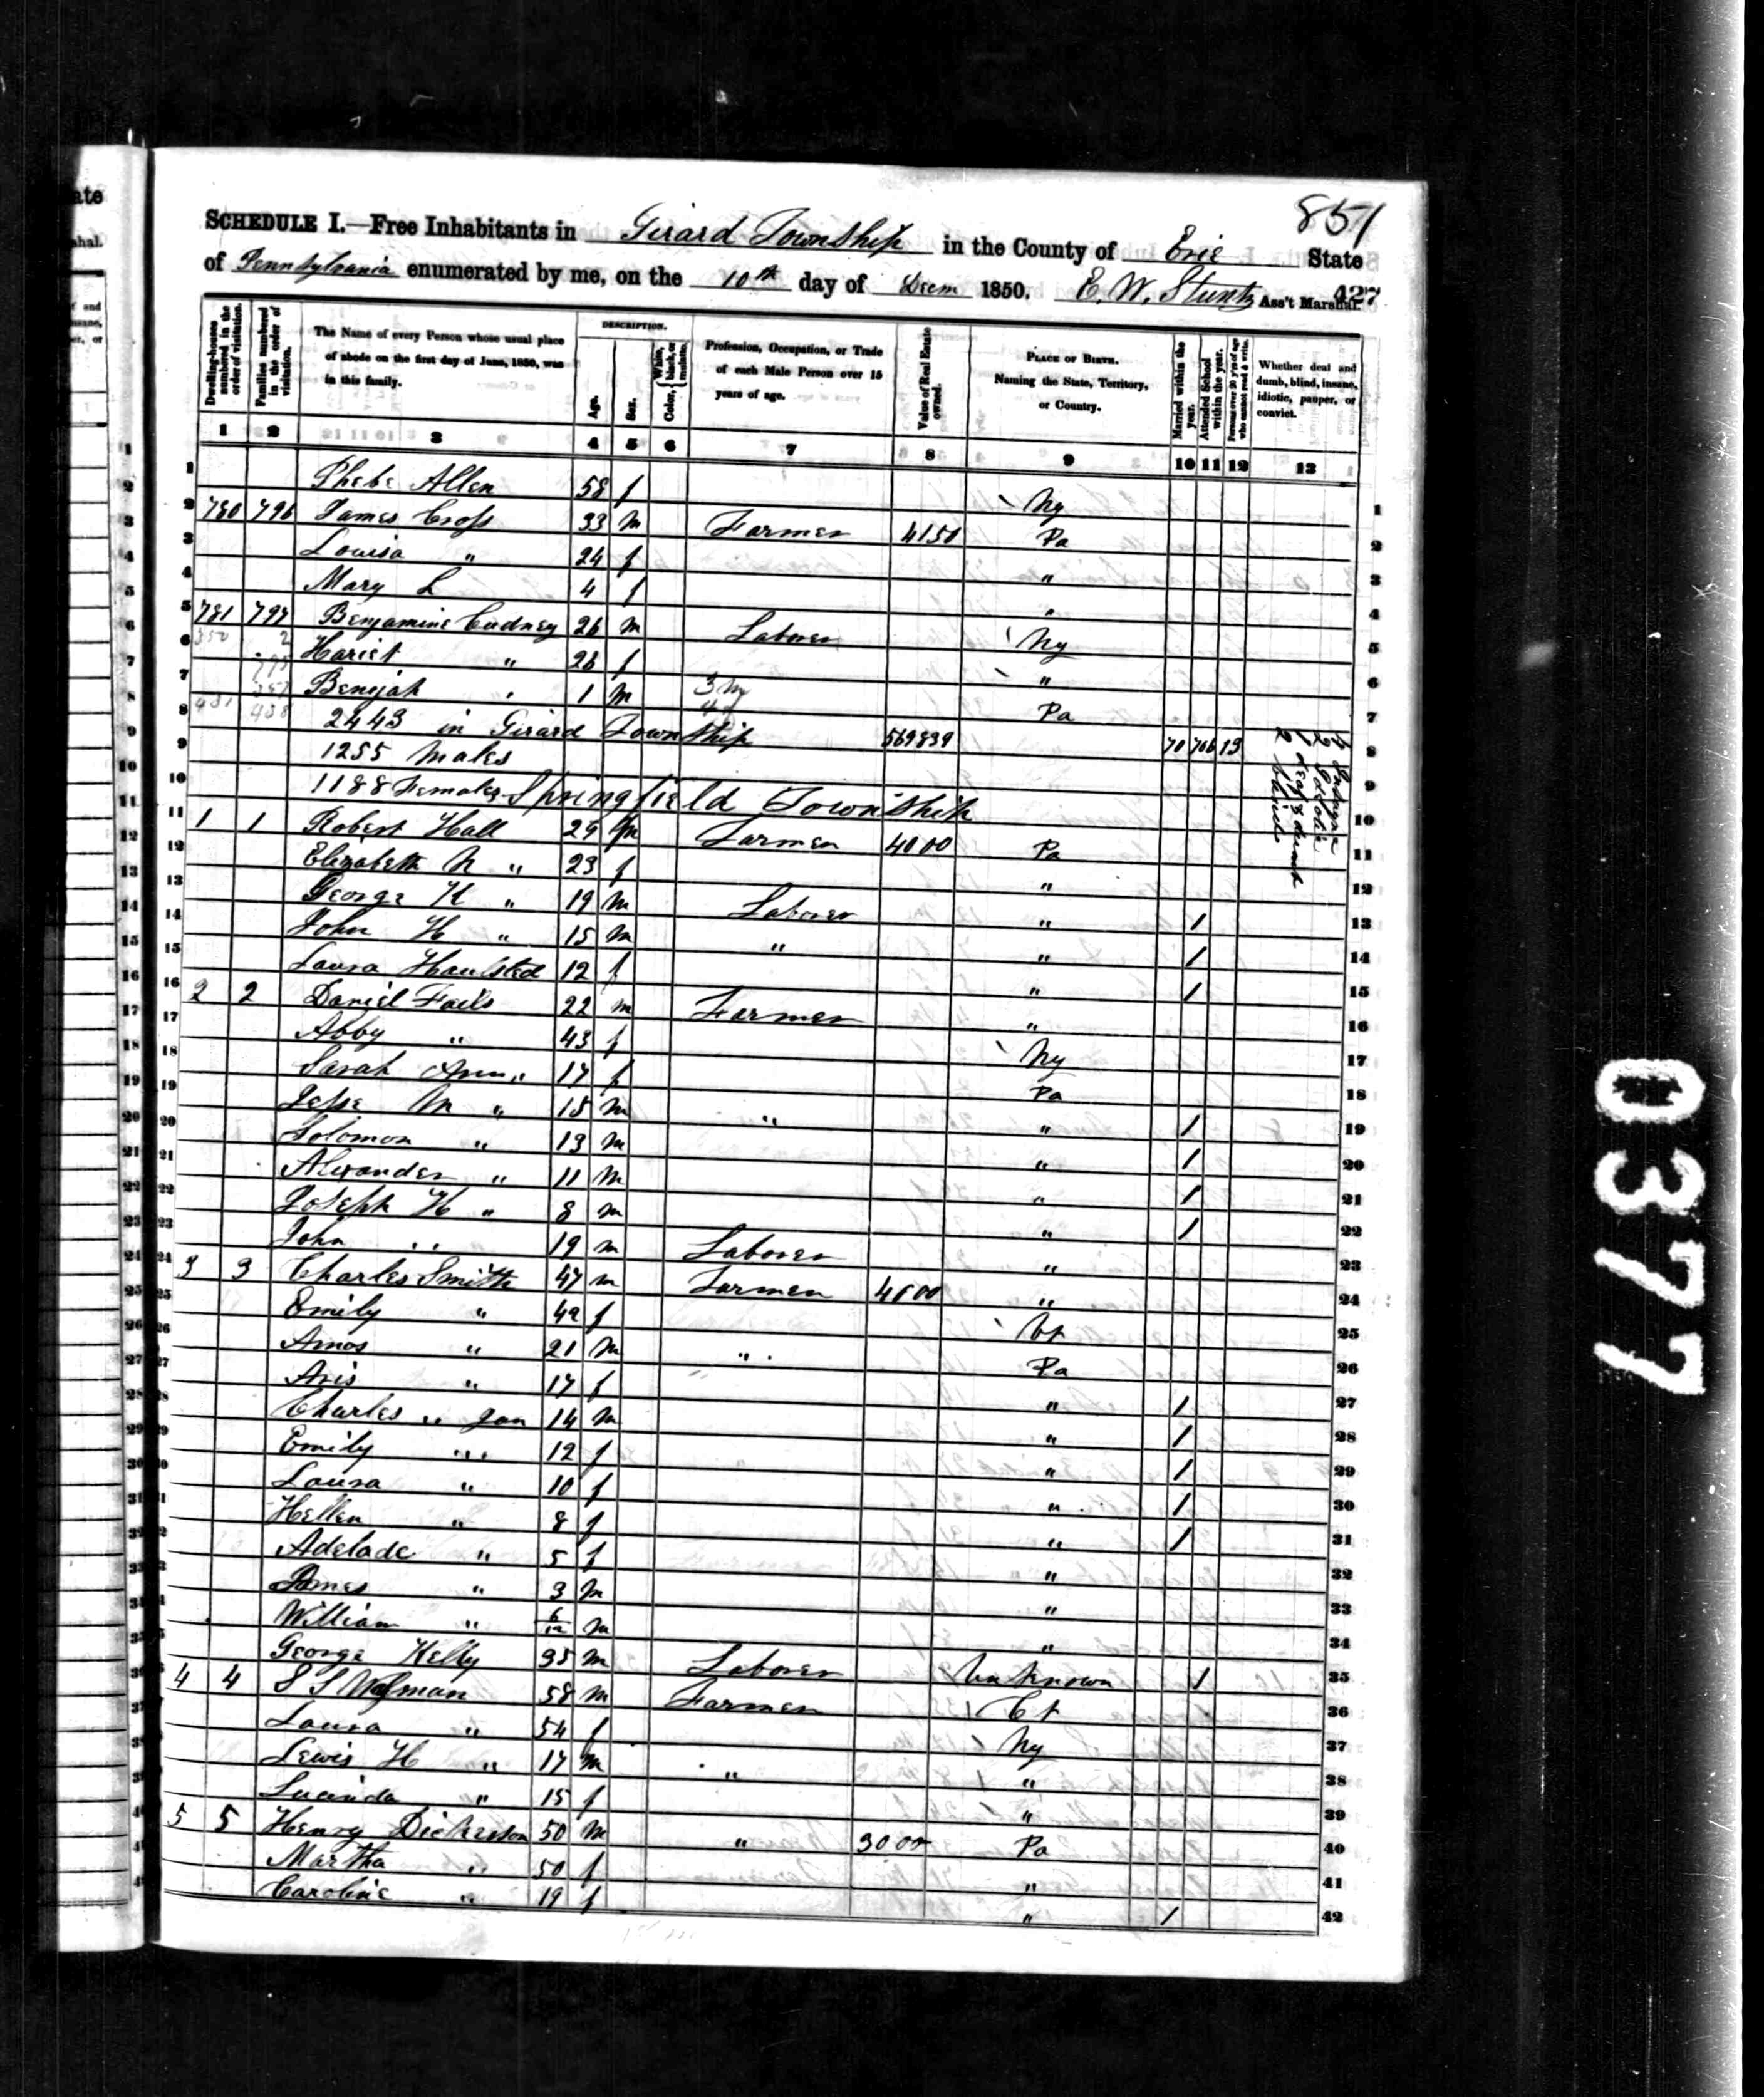 851
SCHEDULE I.—Free Inhabitants in Girard Township in the County of Erie State
of Pennsylvania enumerated by me, on the 10th day of Decm 1850. E. W. Stuntz Ass't Marshal.
427
Dwelling-houses numbered in the order of visitation.
Families numbered in the order of visitation.
The Name of every Person whose usual place of abode on the first day of June, 1850, was in this family.
DESCRIPTION.
Age.
Sex.
Color, White, black, or mulatto.
Profession, Occupation, or Trade of each Male Person over 15 years of age.
Value of Real Estate owned.
PLACE OF BIRTH. Naming the State, Territory, or Country.
Married within the year.
Attended School within the year.
Persons over 20 y'rs of age who cannot read & write.
Whether deaf and dumb, blind, insane, idiotic, pauper, or convict.
1 2 3 4 5 6 7 8 9 10 11 12 13
1 Phebe Allen 58 f Ny 1
2 780 796 James Cross 33 m Farmer 4150 Pa 2
3 Louisa " 24 f " 3
4 Mary L 4 f " 4
5 781 797 Benjamine Cudney 26 m Laborer Ny 5
6 Hariet " 26 f " 6
7 Benijah " 1 m Pa 7
8 2443 in Girard Township 569839 70 706 13 8
9 1255 Males 9
10 1188 Females Springfield Township 10
11 1 1 Robert Hall 29 m Farmer 4000 Pa 11
12 Elizabeth N " 23 f " 12
13 George H " 19 m Laborer " 1 13
14 John H " 15 m " " 1 14
15 Laura Haulsted 12 f " 1 15
16 2 2 Daniel Fails 22 m Farmer " 16
17 Abby " 43 f Ny 17
18 Sarah Ann " 17 f Pa 18
19 Jesse M " 15 m " " 1 19
20 Solomon " 13 m " 1 20
21 Alexander " 11 m " 1 21
22 Joseph H " 8 m " 1 22
23 John " 19 m Laborer " 23
24 3 3 Charles Smith 47 m Farmer 4600 " 24
25 Emily " 42 f Vt 25
26 Amos " 21 m " Pa 26
27 Avis " 17 f " 1 27
28 Charles " Jun 14 m " 1 28
29 Emily " 12 f " 1 29
30 Laura " 10 f " 1 30
31 Hellen " 8 f " 1 31
32 Adelade " 5 f " 32
33 James " 3 m " 33
34 William " 6/12 m " 34
35 George Kelly 35 m Laborer Unknown 1 35
36 4 4 S S 58 m Farmer Ct 36
37 Laura " 54 f Ny 37
38 Lewis H " 17 m " " 38
39 Lucinda " 15 f " 39
40 5 5 Henry Dickerson 50 m " 3000 Pa 40
41 Martha " 50 f " 41
42 Caroline " 19 f " 1 42
0377